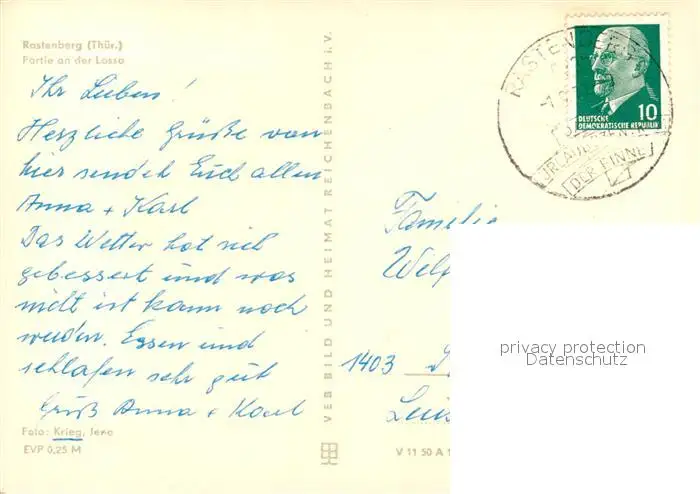 Rastenberg (Thür.)
Partie an der Lossa
Ihr Lieben!
Herzliche Grüße von
hier sendet Euch allen
Anna + Karl
Das Wetter hat sich
gebessert und was
nicht ist kann noch
werden. Essen und
schlafen sehr gut
Gruß Anna + Karl
Foto: Krieg, Jena
EVP 0,25 M
VEB BILD UND HEIMAT REICHENBACH i. V.
V 11 50 A 1
RASTENBERG
DER FINNE
10
DEUTSCHE
DEMOKRATISCHE REPUBLIK
Familie
1403
privacy protection
Datenschutz